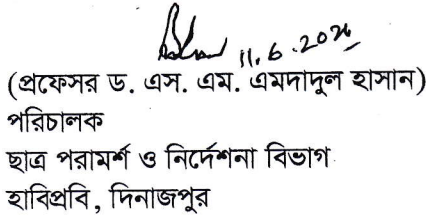 11.6.2026
(প্রফেসর ড. এস. এম. এমদাদুল হাসান)
পরিচালক
ছাত্র পরামর্শ ও নির্দেশনা বিভাগ
হাবিপ্রবি, দিনাজপুর